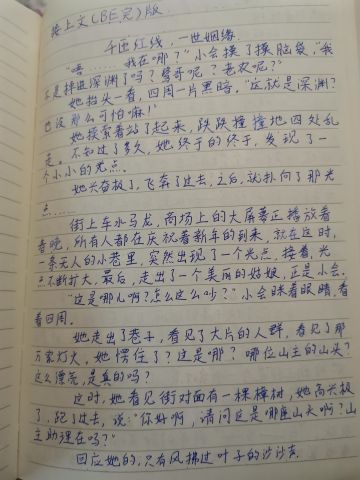 接上文(BE完)版.
千世红线,一世姻缘.
"唔……我在哪?"小会摸了摸脑袋."我
不是掉进深渊了吗?鹭哥呢?老农呢?"
她抬头一看,四周一片黑暗,"这就是深渊?
也没那么可怕嘛!"
她摸索着站了起来,跌跌撞撞地四处乱
走。不知过了多久,她终于的终于,发现了一
个小小的光点.
她兴奋极了,飞奔了过去,之后,就扑向了那光
点……
街上车水马龙,商场上的大屏幕正播放着
春晚,所有人都在庆祝着新年的到来,就在这时,
一条无人的小巷里,突然出现了一个光点,接着,光
点不断扩大,最后,走出了一个美丽的姑娘,正是小会.
"这是哪儿啊?怎么这么吵?"小会眯着眼睛,看
看四周.
她走出了巷子,看见了大片的人群,看见了那
万家灯火,她愣住了?这是哪?哪位山主的山头?
这么漂亮,是真的吗?
这时,她看见街对面有一棵樟树,她高兴极
了,跑了过去,说:"你好啊,请问这是哪座山头啊?山
主助理在吗?"
回应她的,只有风拂过叶子的沙沙声.